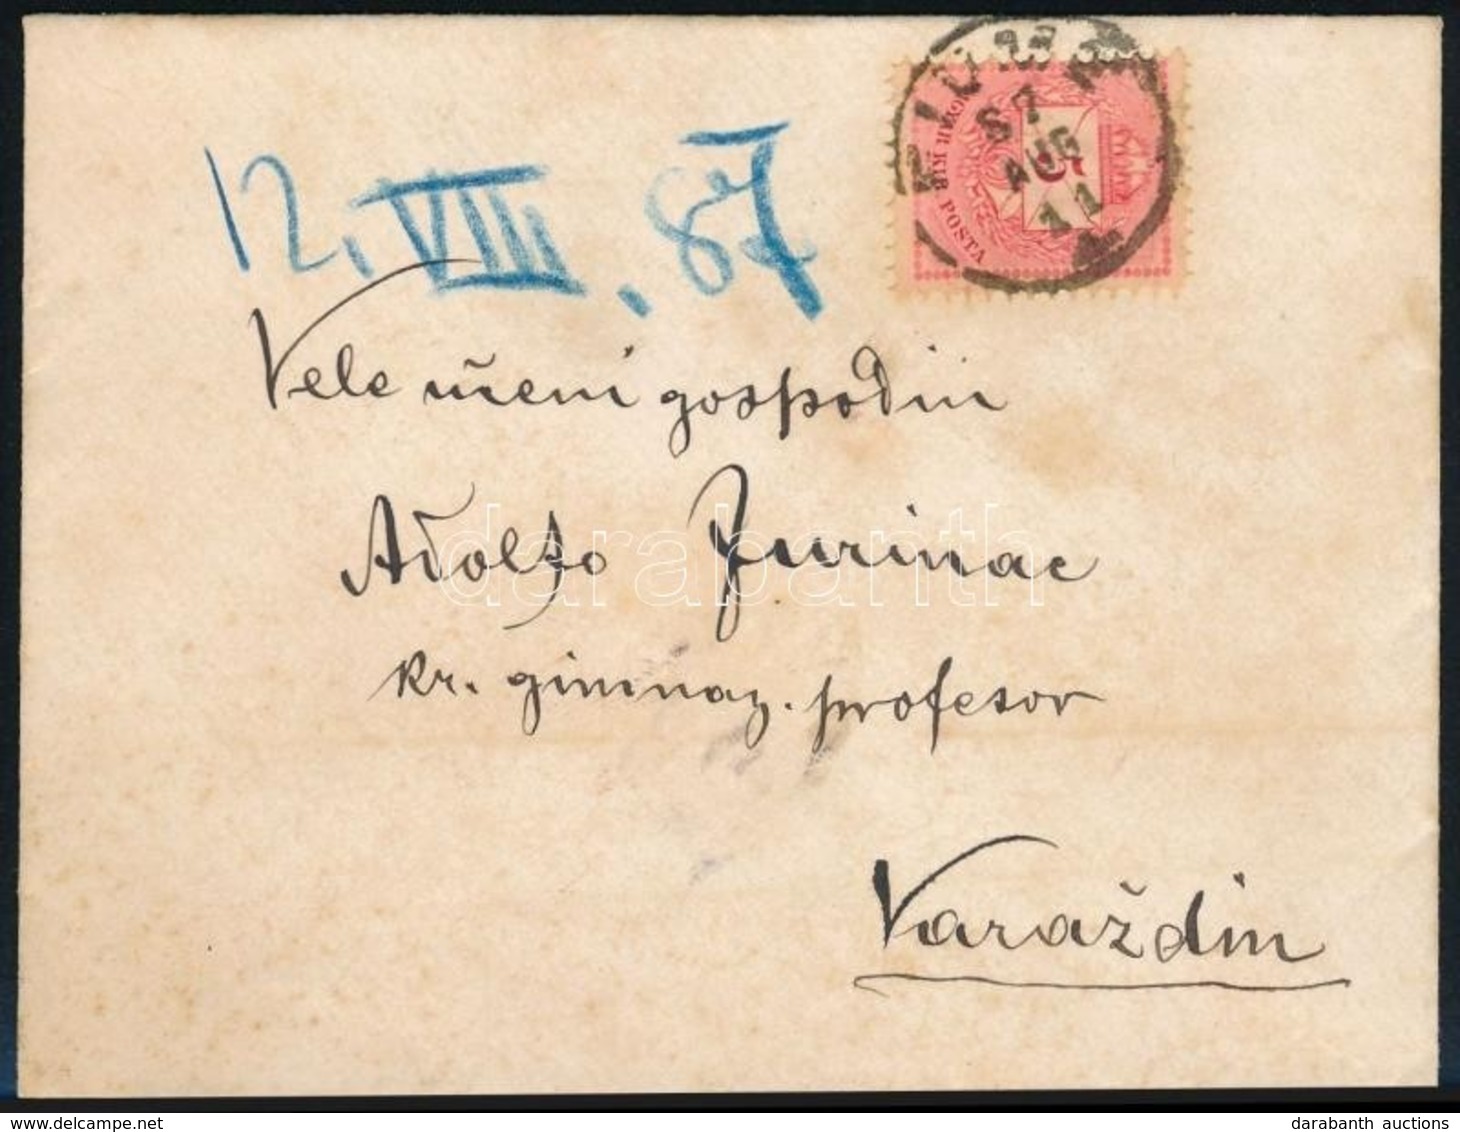 12. VIII. 87
87
AUG
11
5
MAGYAR KIR. POSTA
Vele učeni gospodin
Adolfo Jurinac
kr. gimnaz. profesor
Varaždin
darabanth
darabanth auctions